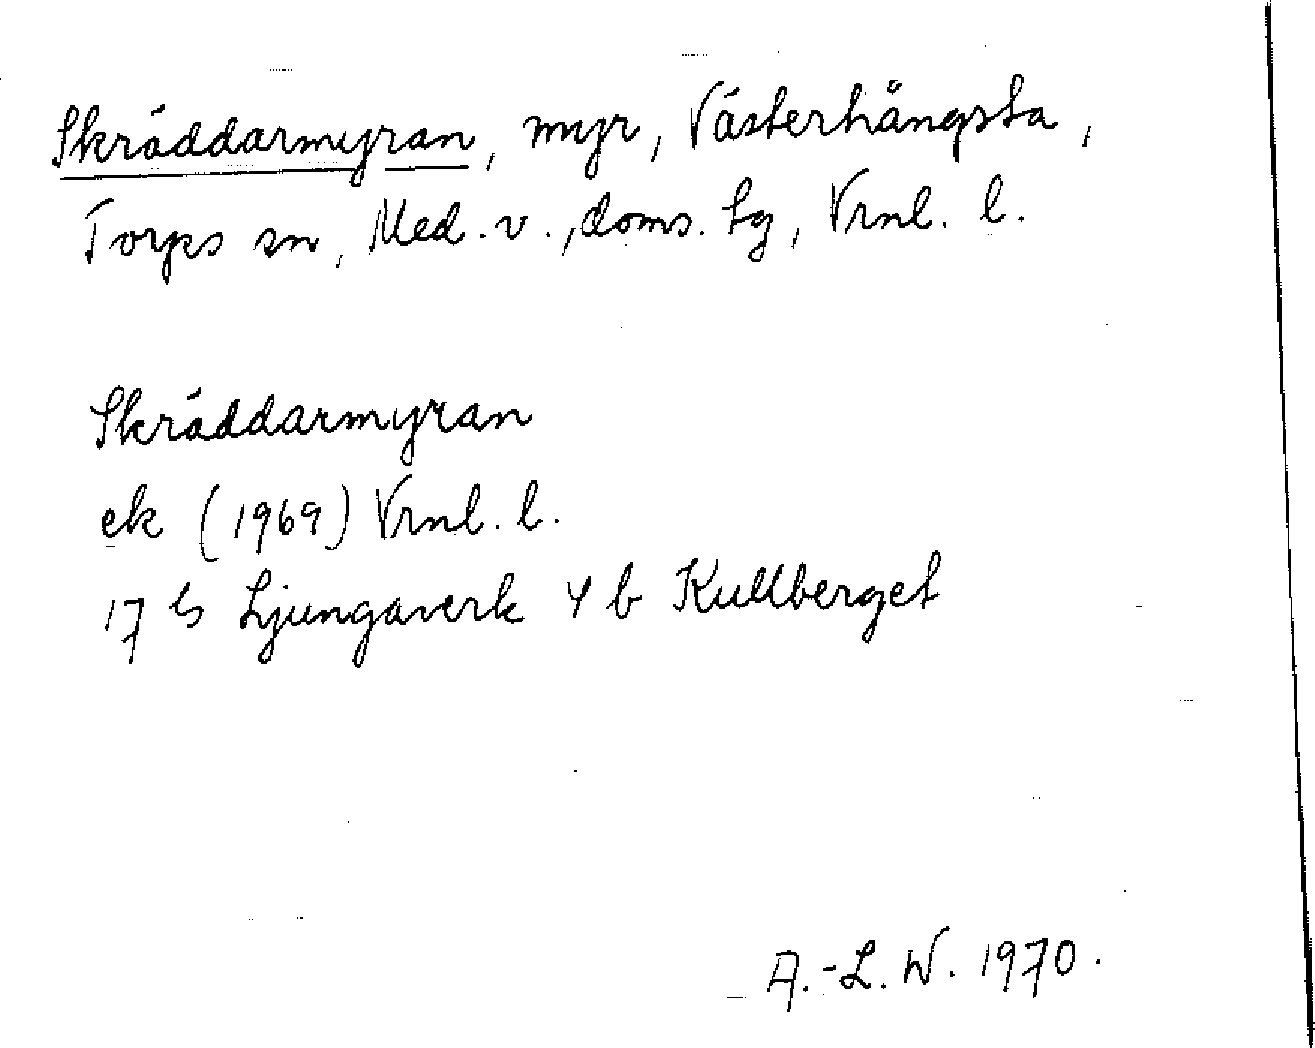 Skräddarmyran, myr, Västerhångsta,
Torps sn, Med. v., doms. hg, Vrnl. l.
Skräddarmyran
ek (1969) Vrnl. l.
17 G Ljungaverk 4 b Kullberget
A.-L. W. 1970.